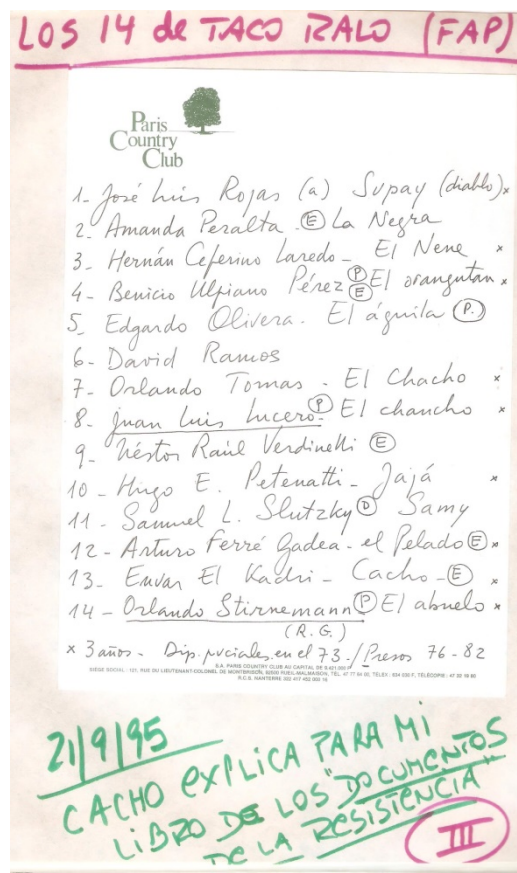 LOS 14 de TACO RALO (FAP)
Paris
Country
Club
1- José Luis Rojas (a) Supay (diablo) x
2- Amanda Peralta - Ⓔ La Negra
3- Hernán Ceferino Laredo - El Nene x
4- Benicio Ulpiano Pérez Ⓟ Ⓔ El orangután x
5- Edgardo Olivera. El águila (P.)
6- David Ramos
7- Orlando Tomas - El Chacho x
8- Juan Luis Lucero Ⓟ El chancho x
9- Néstor Raúl Verdinelli Ⓔ
10- Hugo E. Petenatti - Jajá x
11- Samuel L. Slutzky Ⓓ Samy
12- Arturo Ferré Gadea - el Pelado Ⓔ x
13- Envar El Kadri - Cacho - Ⓔ x
14- Orlando Stirnemann Ⓟ El abuelo x
(R.G.)
x 3 años - Dip. pciales. en el 73 - / Presos 76-82
S.A. PARIS COUNTRY CLUB AU CAPITAL DE
SIÈGE SOCIAL : 121, RUE DU LIEUTENANT-COLONEL DE MONTBRISON, 92500 RUEIL-MALMAISON, TÉL. 47 77 64 00, TELEX : 634 036 F, TÉLÉCOPIE :
R.C.S. NANTERRE
21/9/95
CACHO EXPLICA PARA MI
LIBRO DE LOS "DOCUMENTOS
DE LA RESISTENCIA"
III